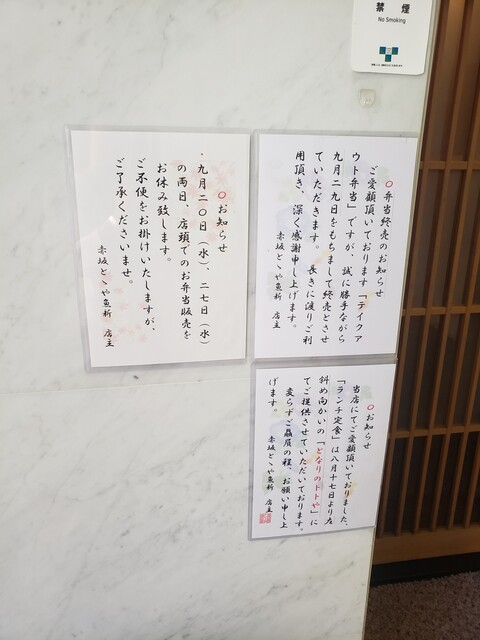 禁煙
No Smoking
〇弁当終売のお知らせ
ご愛顧頂いております「テイクア
ウト弁当」ですが、誠に勝手ながら
九月二九日をもちまして終売とさせ
ていただきます。 長きに渡りご利
用頂き、深く感謝申し上げます。
赤坂とゝや魚新 店主
〇お知らせ
九月二〇日(水)、二七日(水)
の両日、店頭でのお弁当販売を
お休み致します。
ご不便をお掛けいたしますが、
ご了承くださいませ。
赤坂とゝや魚新 店主
〇お知らせ
当店にてご愛顧頂いておりました、
「ランチ定食」は八月十七日より左
斜め向かいの「となりのトトや」に
てご提供させていただいております。
変らずご贔屓の程、お願い申し上
げます。
赤坂とゝや魚新 店主